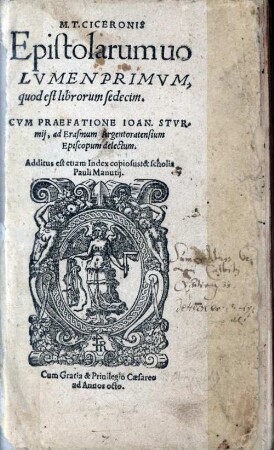 M. T. CICERONIS
Epistolarum uo
LVMEN PRIMVM,
quod est librorum sedecim.
CVM PRAEFATIONE IOAN. STVR-
mij, ad Erasmum Argentoratensium
Episcopum delectum.
Additus est etiam Index copiosus: & scholia
Pauli Manutij.
Cum Gratia & Privilegio Cæsareo
ad Annos octo.